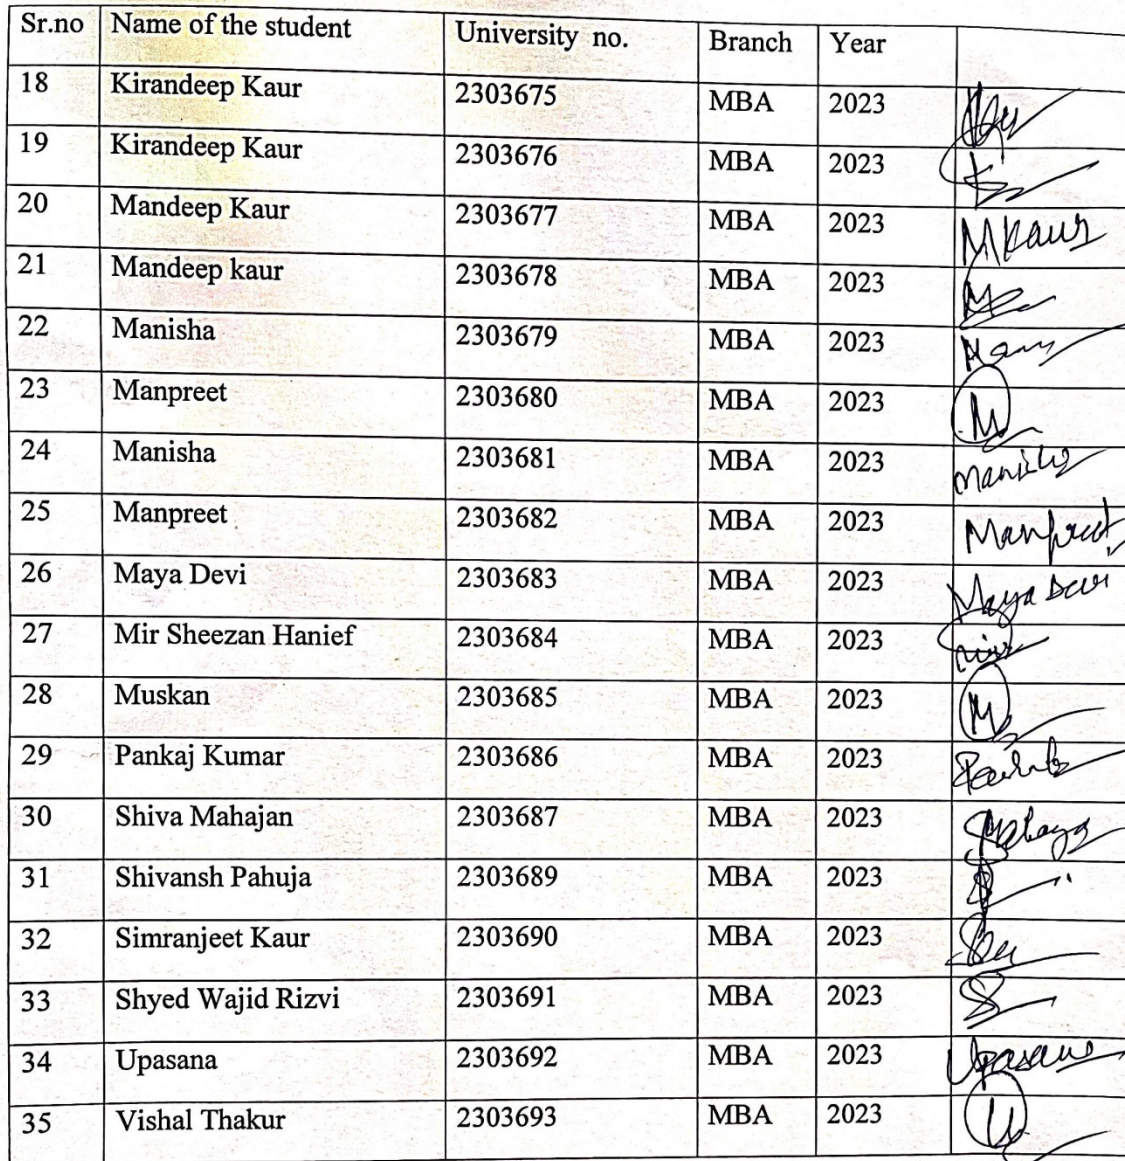 Sr.no Name of the student University no. Branch Year
18 Kirandeep Kaur 2303675 MBA 2023
19 Kirandeep Kaur 2303676 MBA 2023
20 Mandeep Kaur 2303677 MBA 2023 MKaur
21 Mandeep kaur 2303678 MBA 2023
22 Manisha 2303679 MBA 2023
23 Manpreet 2303680 MBA 2023 M
24 Manisha 2303681 MBA 2023 Manisha
25 Manpreet 2303682 MBA 2023 Manpreet
26 Maya Devi 2303683 MBA 2023 Maya Devi
27 Mir Sheezan Hanief 2303684 MBA 2023
28 Muskan 2303685 MBA 2023 M
29 Pankaj Kumar 2303686 MBA 2023
30 Shiva Mahajan 2303687 MBA 2023
31 Shivansh Pahuja 2303689 MBA 2023
32 Simranjeet Kaur 2303690 MBA 2023
33 Shyed Wajid Rizvi 2303691 MBA 2023
34 Upasana 2303692 MBA 2023 Upasana
35 Vishal Thakur 2303693 MBA 2023